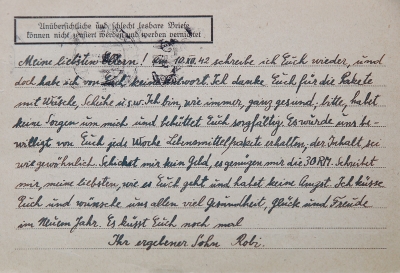 Unübersichtliche und schlecht lesbare Briefe
können nicht zensiert werden und werden vernichtet
Meine liebsten Eltern! Am 10.XII.42 schreibe ich Euch wieder, und
doch habe ich von Euch keine Antwort. Ich danke Euch für die Pakete
mit Wäsche, Schuhe u.s.w. Ich bin, wie immer, ganz gesund; bitte, habt
keine Sorgen um mich und behüttet Euch sorgfältig. Es würde uns be-
willigt von Euch jede Woche Lebensmittelpakete erhalten, der Inhalt, sei
wie gewöhnlich. Schicket mir kein Geld, es genügen mir die 30 RM. Schreibt
mir, meine liebsten, wie es Euch geht und habet keine Angst. Ich küsse
Euch und wünsche uns allen viel Gesundheit, Glück und Freude
im Neuem Jahr. Es küsst Euch noch mal
Ihr ergebener Sohn Robi.